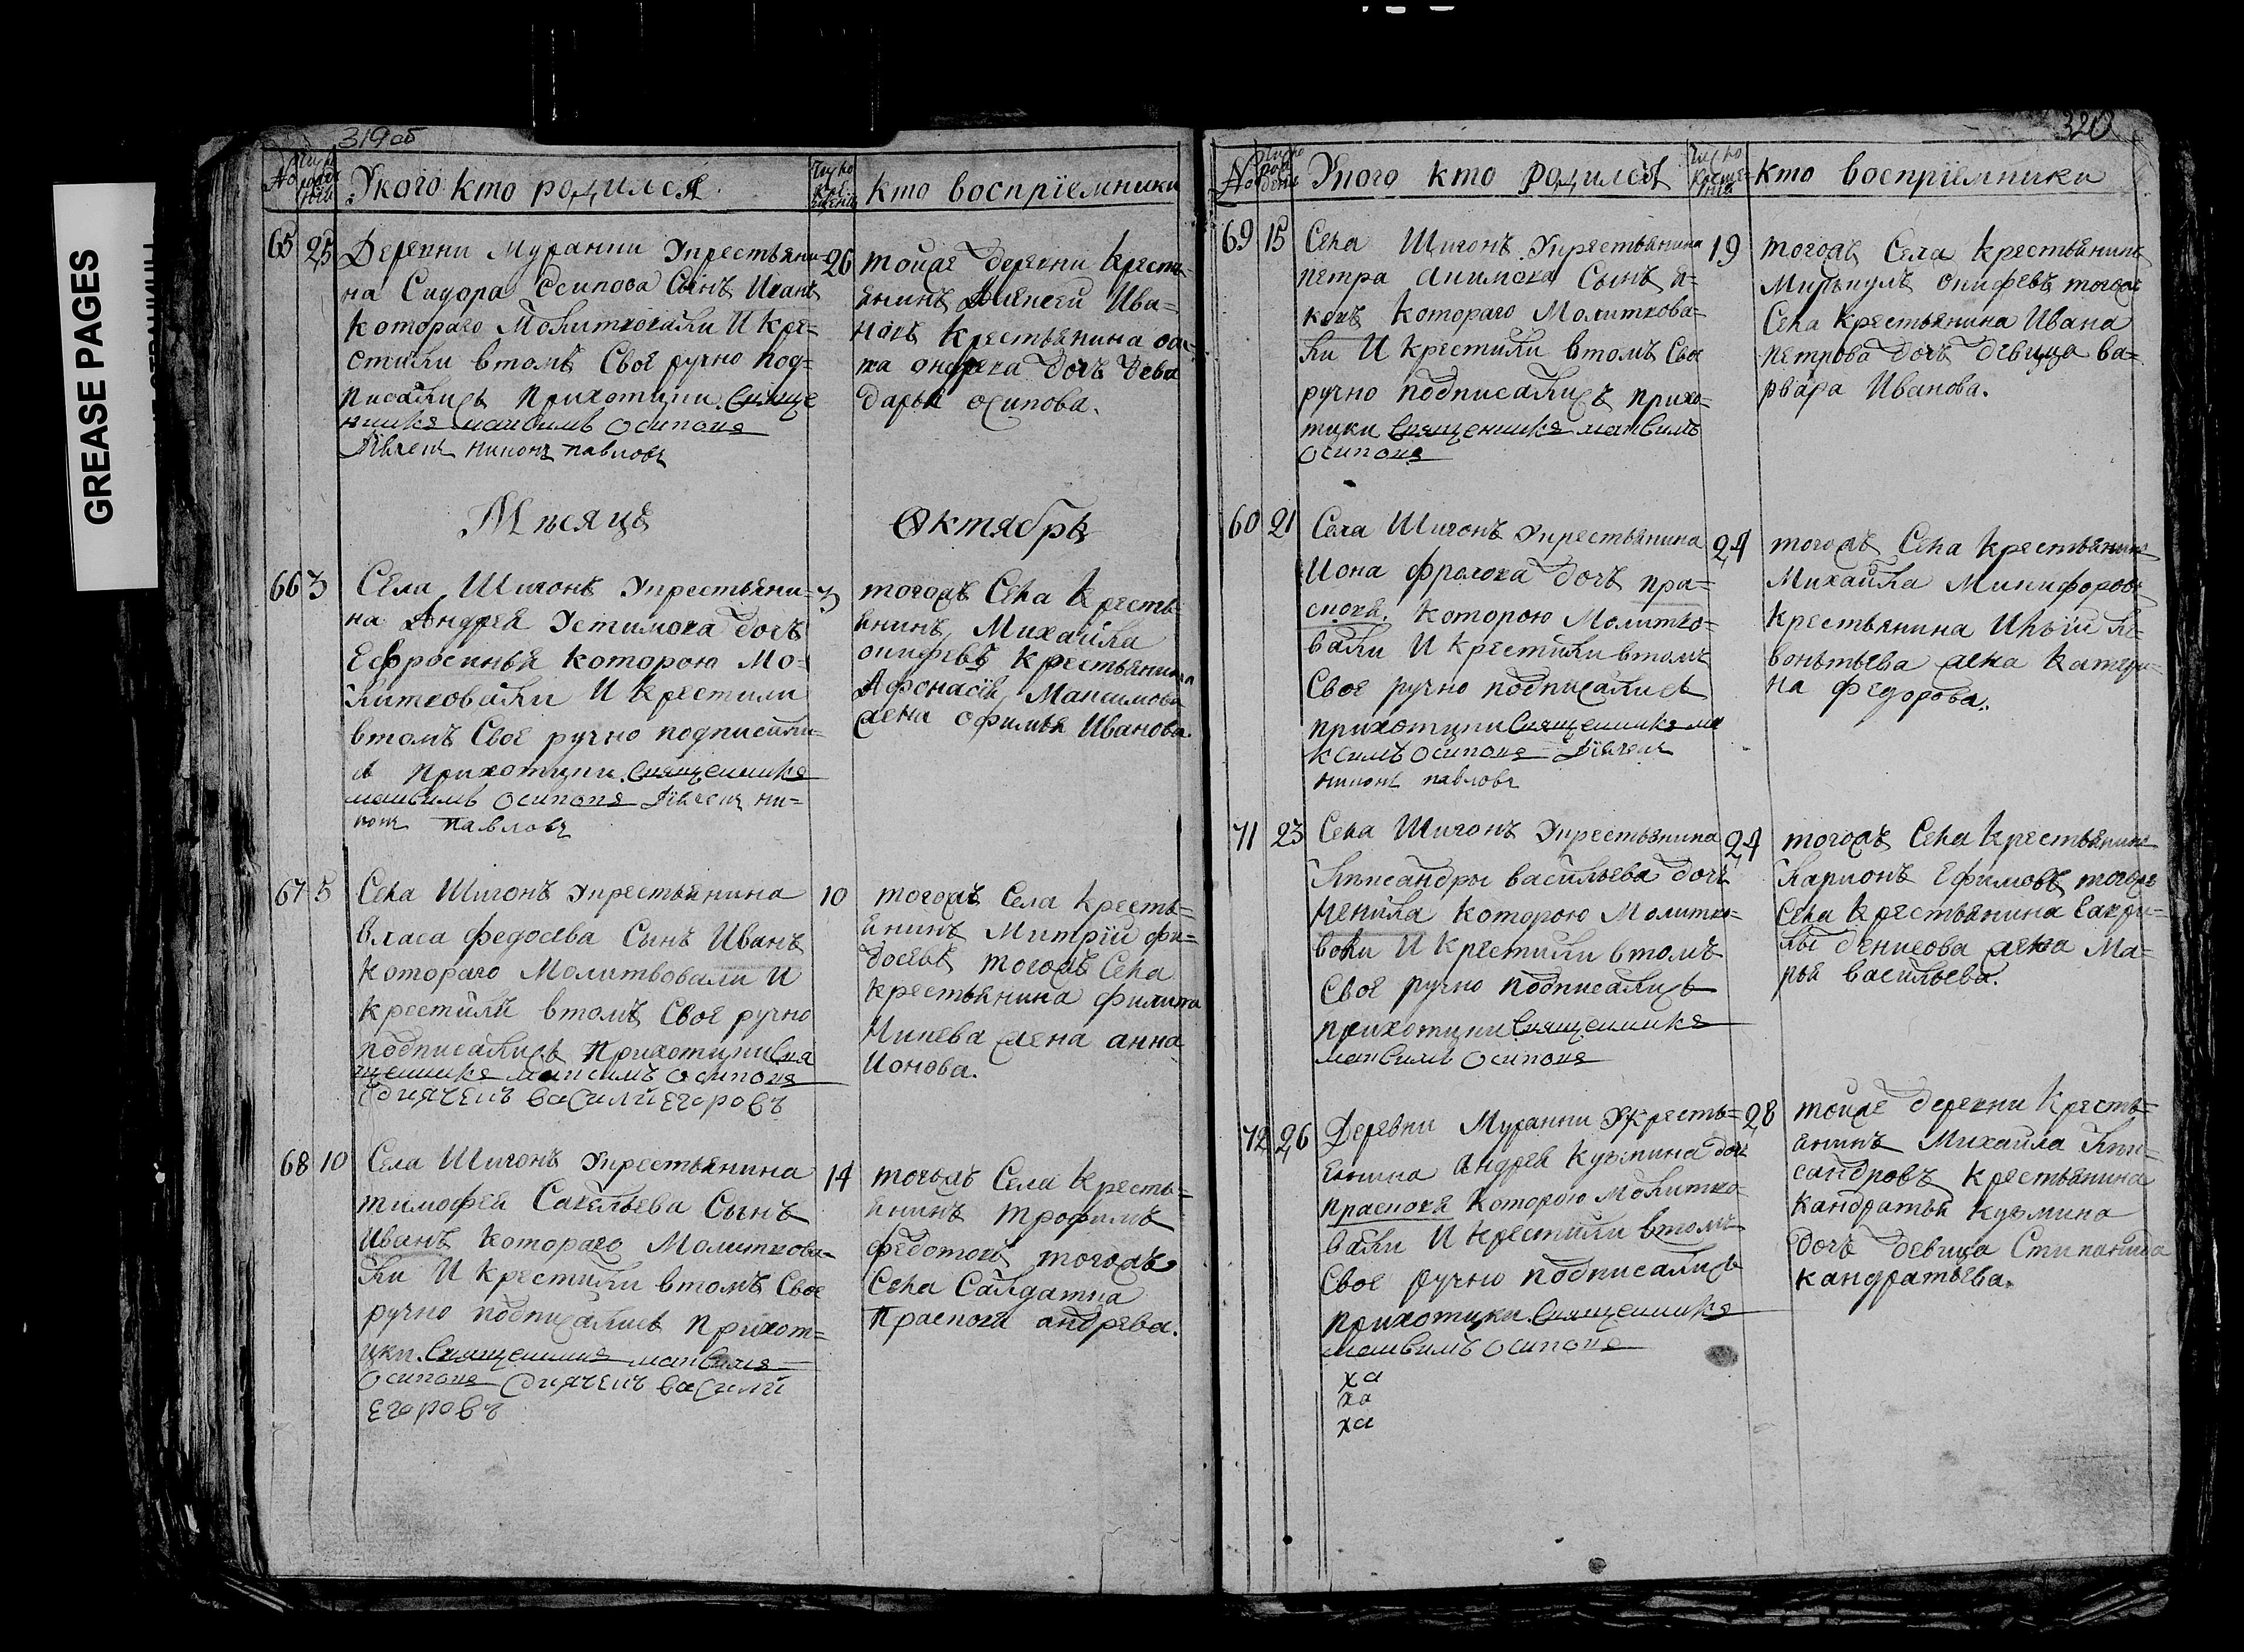 GREASE PAGES
319об
№ Число рожденія
У кого кто родился
Число крещенія
кто восприемники
65 25 Деревни Муранки Укрестьяни=
на Сидора Осипова Сынъ Иванъ
котораго Молитвовали И Кре=
стили втомъ Свое ручно Под=
писались Прихотцки Священ
никъ Максимъ Осиповъ
Дьячекъ никонъ павловъ
26 тойже деревни Кресть=
янинъ Алексей Ива=
новъ Крестьянина
дочь Дева
дарья осипова.
Мѣсяцъ Октябрь
66 3 Села Шигонъ Укрестьяни=
на Андрея Устимова дочь
Ефросинья Которою Мо=
литвовали И Крестили
втомъ Свое ручно подписали=
сь Прихотцки Священникъ
максимъ Осиповъ Дьячекъ ни=
конъ павловъ
3 тогожъ Села Кресть=
янинъ Михайла
онифевъ Крестьянина
Афонасія Максимова
жена офимья Иванова.
67 5 Села Шигонъ Укрестьянина
власа федосева Сынъ Иванъ
Котораго Молитвовали И
Крестили втомъ Свое ручно
подписались Прихотцки Свя
щенникъ максимъ осиповъ
Диячекъ васили егоровъ
10 тогожъ Села Кресть=
янинъ Митрїй фи=
досевъ тогожъ Села
Крестьянина филипа
Минева жена анна
Ионова.
68 10 Села Шигонъ Укрестьянина
тимофея Савельева Сынъ
Иванъ Котораго Молитвова=
ли И Крестили втомъ Свое
ручно подписались Прихот=
цки. Священникъ максимъ
Осиповъ Диячекъ васили
егоровъ
14 тогожъ Села Кресть=
янинъ Трофимъ
федотовъ тогожъ
Села Салдатка
Прасковя андрева.
320
№ Число рожденія
У кого кто родился
Число крещенія
кто восприемники
69 15 Села Шигонъ Укрестьянина
петра Акимова Сынъ я=
ковъ Котораго Молитвова=
ли И Крестили втомъ Свое
ручно подписались прихо=
тцки Священникъ максимъ
Осиповъ
19 тогожъ Села Крестьянинъ
онифевъ тогожъ
Села Крестьянина Ивана
петрова дочь девица ва=
рвара Иванова.
60 21 Села Шигонъ Укрестьянина
Иона фролова дочь пра=
сковя. Которою Молитво=
вали И Крестили втомъ
Свое ручно подписались
прихотцки Священникъ ма
ксимъ осиповъ Дьячекъ
никонъ павловъ
24 тогожъ Села Крестьянинъ
Михайла Микифоровъ
Крестьянина Ильи Ле=
вонтьева жена Катери=
на федорова.
71 23 Села Шигонъ Укрестьянина
Лександры васильева дочь
Ненила Которою Молитво=
вали И Крестили втомъ
Свое ручно подписались
прихотцки Священникъ
максимъ Осиповъ
24 тогожъ Села Крестьянинъ
Ларионъ Ефимовъ тогожъ
Села Крестьянина Гаври=
лы денисова жена Ма=
рья васильева.
72 26 Деревни Муранки Укресть=
янина Андрея Кузмина дочь
прасковя Которою Молитво=
вали И Крестили втомъ
Свое ручно подписались
прихотцки. Священникъ
максимъ Осиповъ
ха
ха
ха
28 тойже деревни Кресть=
янинъ Михаила Лек=
сандровъ Крестьянина
Кандратья Кузмина
дочь девица Степанида
кандратьева.